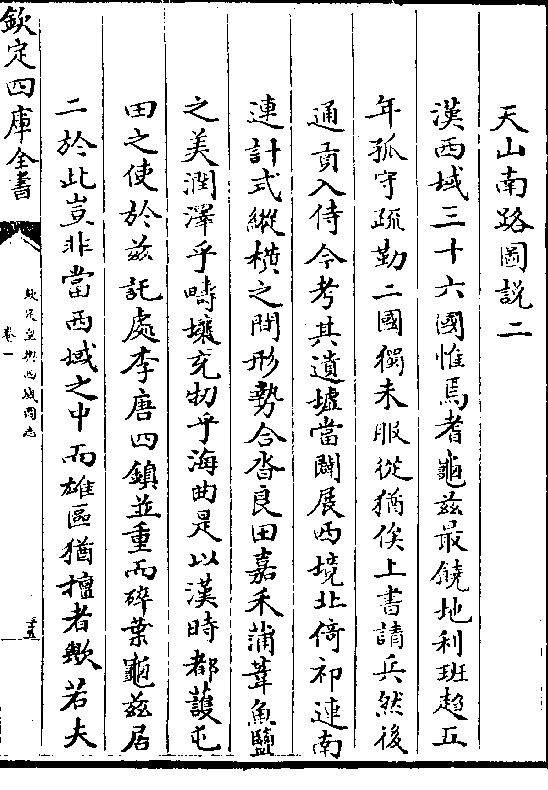 天山南路圖說二
漢西域三十六國惟焉耆龜兹最饒地利班超五
年孤守疏勒二國獨未服從猶俟上書請兵然後
通貢入侍今考其遺墟當闢展西境北倚祁連南
連計式縱横之間形勢合沓良田嘉禾蒲葦魚鹽
之美潤澤乎疇壤充牣乎海曲是以漢時都護屯
田之使於兹託處李唐四鎮並重而碎葉龜兹居
二於此豈非當西域之中而雄區猶擅者歟若夫
欽定四庫全書
欽定皇輿西域圖志
卷一